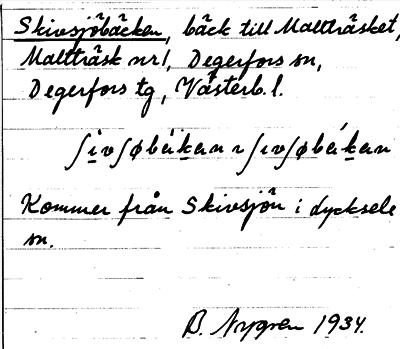 Skivsjöbäcken, bäck till Mallträsket,
Mallträsk nr 1, Degerfors sn,
Degerfors tg, Västerb. l.
ʃivʃøbäkan ~ ʃɩvʃøbákan
Kommer från Skivsjön i dycksele
sn.
B. Nygren 1934.